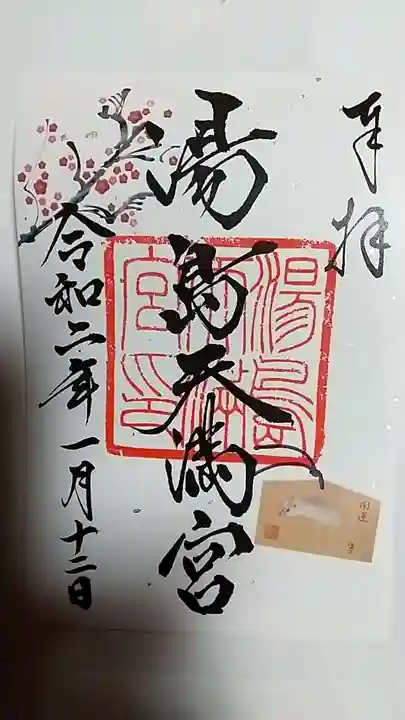 奉拝
湯島天満宮
湯島天満宮印
令和二年一月十二日
開運